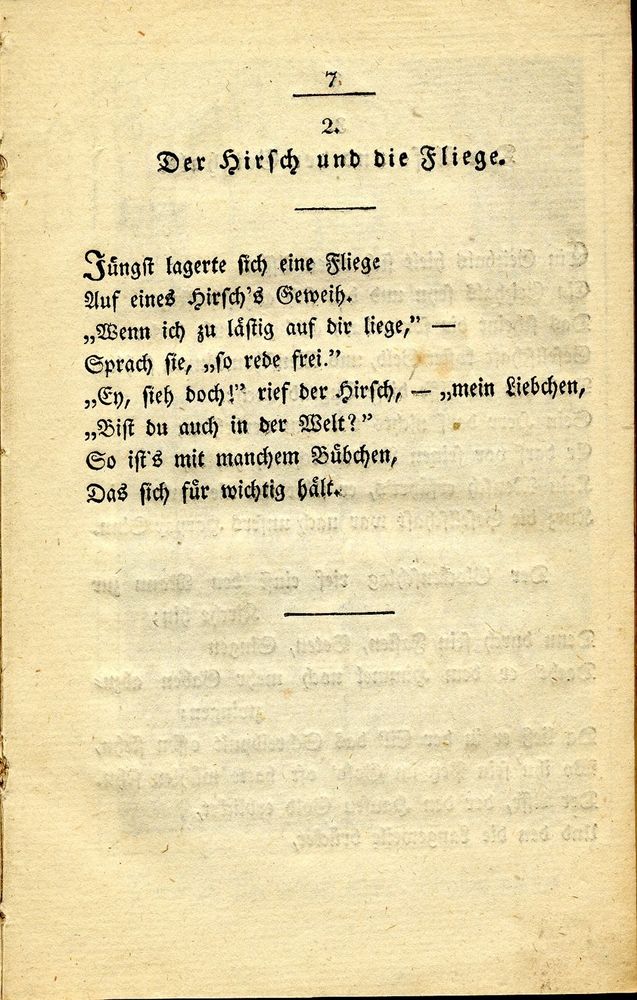 7
2.
Der Hirsch und die Fliege.
Jüngst lagerte sich eine Fliege
Auf eines Hirsch's Geweih.
„Wenn ich zu lästig auf dir liege,” —
Sprach sie, „so rede frei.”
„Ey, sieh doch!” rief der Hirsch, — „mein Liebchen,
„Bist du auch in der Welt?”
So ist's mit manchem Bübchen,
Das sich für wichtig hält.